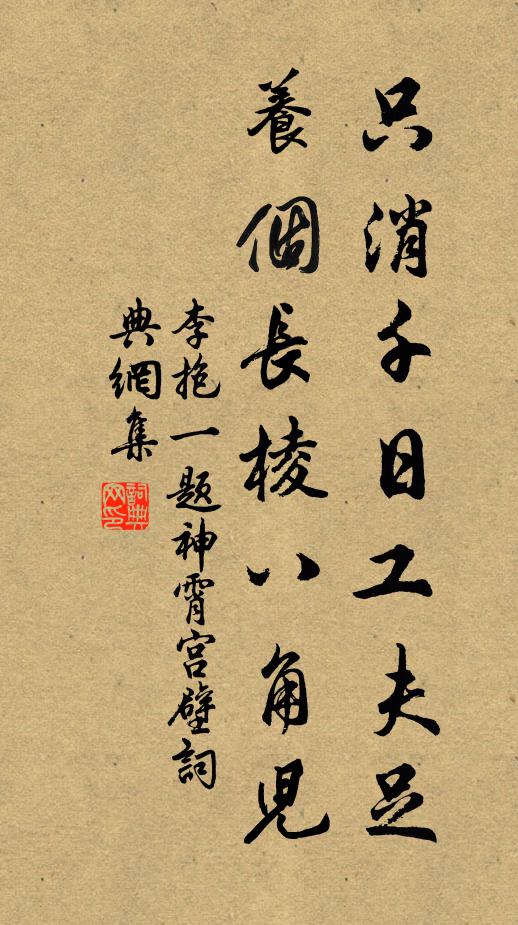 只消千日工夫足
養個長棱八角児
李抱一題神霄宮壁詞
典網集
詞典網印